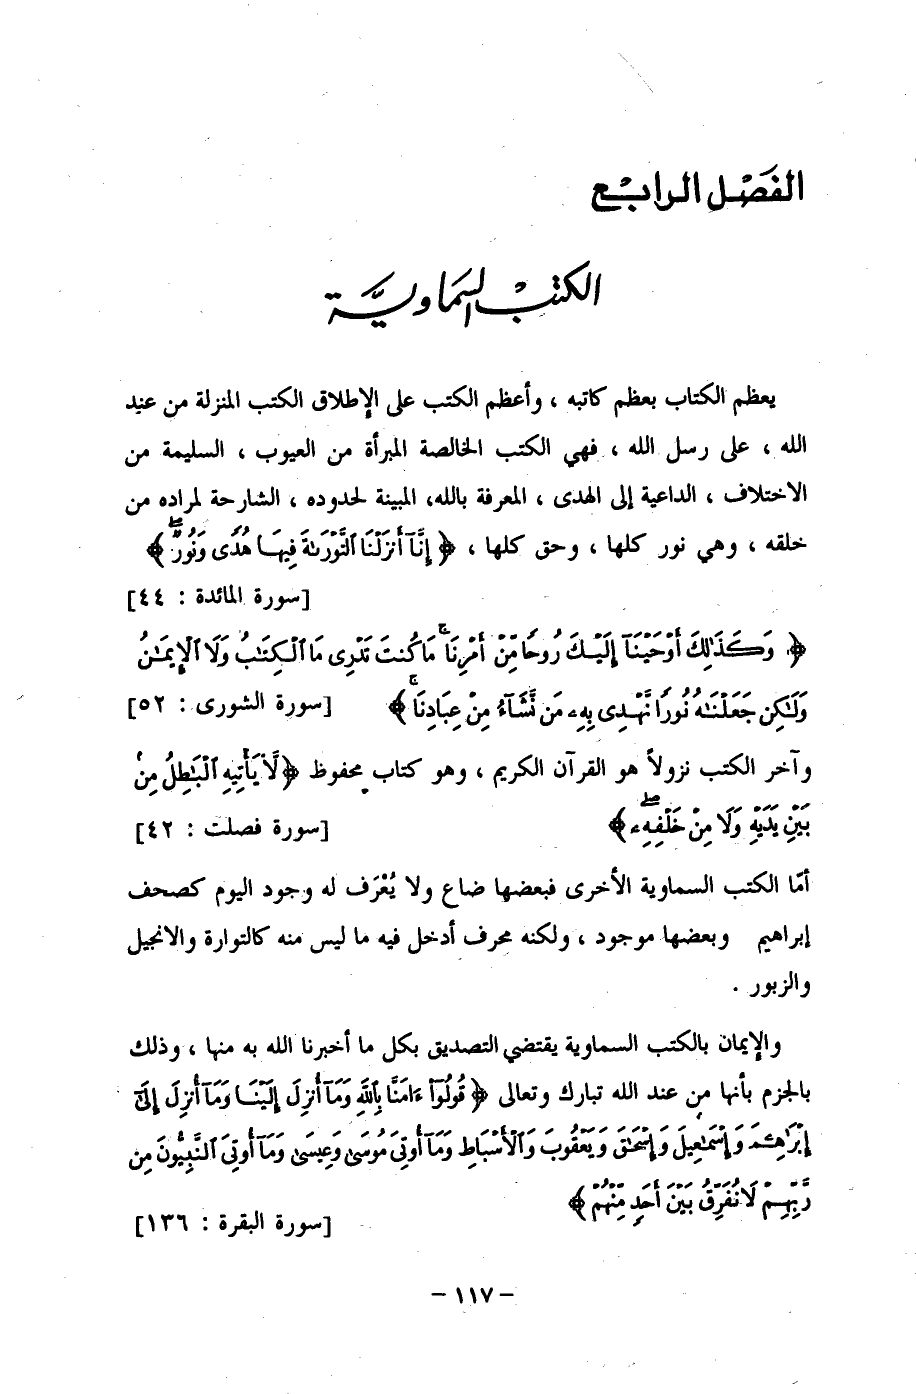 الفصل الرابع
الكتب السماوية
يعظم الكتاب بعظم كاتبه ، وأعظم الكتب على الإطلاق الكتب المنزلة من عند
الله ، على رسل الله ، فهي الكتب الخالصة المبرأة من العيوب ، السليمة من
الاختلاف ، الداعية إلى الهدى ، المعرفة بالله، المبينة لحدوده ، الشارحة لمراده من
خلقه ، وهي نور كلها ، وحق كلها ، ﴿ إِنَّآ أَنزَلْنَا ٱلتَّوْرَىٰةَ فِيهَا هُدًى وَنُورٌ ۖ ﴾
[سورة المائدة : ٤٤]
﴿ وَكَذَٰلِكَ أَوْحَيْنَآ إِلَيْكَ رُوحًا مِّنْ أَمْرِنَا ۚ مَا كُنتَ تَدْرِى مَا ٱلْكِتَٰبُ وَلَا ٱلْإِيمَٰنُ
وَلَٰكِن جَعَلْنَٰهُ نُورًا نَّهْدِى بِهِۦ مَن نَّشَآءُ مِنْ عِبَادِنَا ۚ ﴾ [سورة الشورى : ٥٢]
وآخر الكتب نزولاً هو القرآن الكريم ، وهو كتاب محفوظ ﴿ لَّا يَأْتِيهِ ٱلْبَٰطِلُ مِنۢ
بَيْنِ يَدَيْهِ وَلَا مِنْ خَلْفِهِۦ ۖ ﴾ [سورة فصلت : ٤٢]
أمّا الكتب السماوية الأخرى فبعضها ضاع ولا يُعْرَف له وجود اليوم كصحف
إبراهيم وبعضها موجود ، ولكنه محرف أدخل فيه ما ليس منه كالتوارة والانجيل
والزبور .
والإيمان بالكتب السماوية يقتضي التصديق بكل ما أخبرنا الله به منها ، وذلك
بالجزم بأنها من عند الله تبارك وتعالى ﴿ قُولُوٓا۟ ءَامَنَّا بِٱللَّهِ وَمَآ أُنزِلَ إِلَيْنَا وَمَآ أُنزِلَ إِلَىٰٓ
إِبْرَٰهِـۧمَ وَإِسْمَٰعِيلَ وَإِسْحَٰقَ وَيَعْقُوبَ وَٱلْأَسْبَاطِ وَمَآ أُوتِىَ مُوسَىٰ وَعِيسَىٰ وَمَآ أُوتِىَ ٱلنَّبِيُّونَ مِن
رَّبِّهِمْ لَا نُفَرِّقُ بَيْنَ أَحَدٍ مِّنْهُمْ ﴾
[سورة البقرة : ١٣٦]
- ١١٧ -